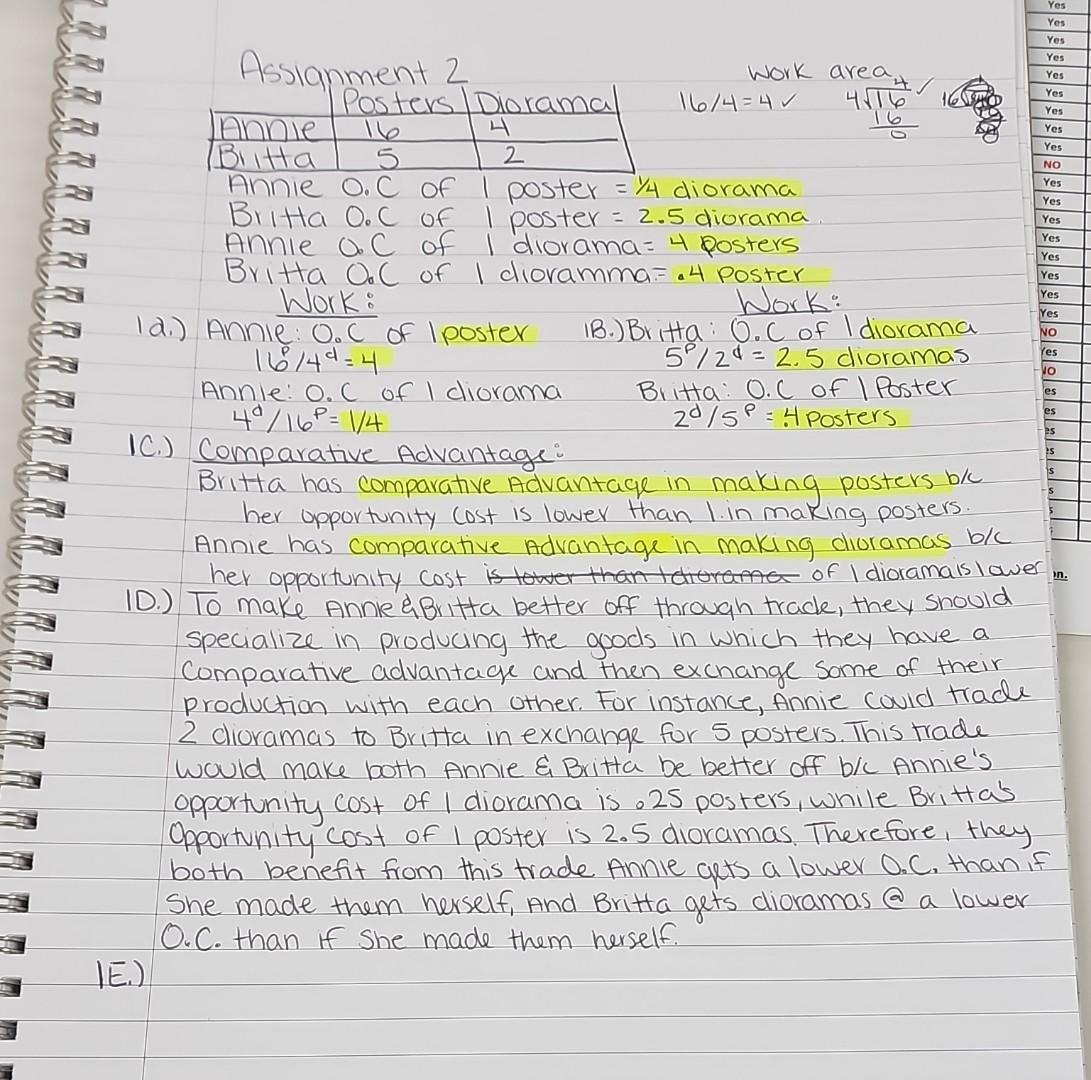 Assignment 2
work area
Posters Diorama
Annie 16 4
Britta 5 2
16/4=4 ✓
4
4√16 ✓
16
0
Annie O.C of 1 poster = 1/4 diorama
Britta O.C of 1 poster = 2.5 diorama
Annie O.C of 1 diorama= 4 posters
Britta O.C of 1 dioramma= .4 poster
Work:
1a.) Annie: O.C of 1 poster
16ᵖ/4ᵈ=4
Annie: O.C of 1 diorama
4ᵈ/16ᵖ=1/4
Work:
1B.) Britta: O.C of 1 diorama
5ᵖ/2ᵈ = 2.5 dioramas
Britta: O.C of 1 Poster
2ᵈ/5ᵖ = .4 Posters
1C.) Comparative Advantage:
Britta has comparative Advantage in making posters b/c
her opportunity cost is lower than 1.in making posters.
Annie has comparative Advantage in making dioramas b/c
her opportunity cost is lower than 1 diorama of 1 diorama is lower
1D.) To make Annie & Britta better off through trade, they should
specialize in producing the goods in which they have a
Comparative advantage and then exchange some of their
production with each other. For instance, Annie could trade
2 dioramas to Britta in exchange for 5 posters. This trade
would make both Annie & Britta be better off b/c Annie's
opportunity cost of 1 diorama is .25 posters, while Britta's
Opportunity cost of 1 poster is 2.5 dioramas. Therefore, they
both benefit from this trade Annie gets a lower O.C. than if
She made them herself, And Britta gets dioramas @ a lower
O.C. than if She made them herself.
1E.)
Yes
Yes
Yes
Yes
Yes
Yes
Yes
Yes
Yes
NO
Yes
Yes
Yes
Yes
Yes
Yes
Yes
Yes
NO
es
IO
es
es
es
s
s
s
s
on.